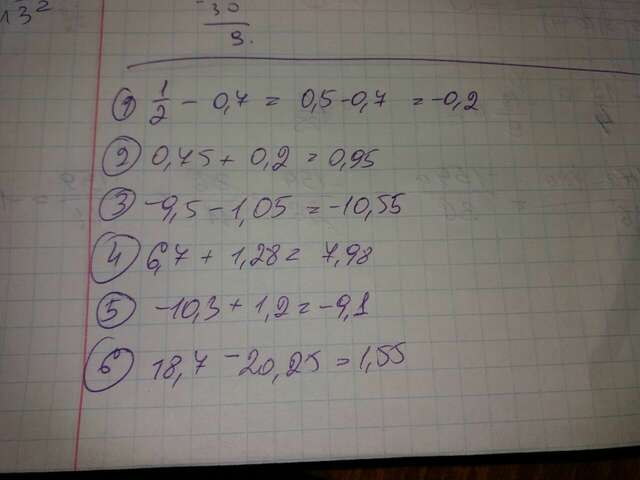 13²
-30
9.
① 1/2 - 0,7 = 0,5-0,7 = -0,2
② 0,75 + 0,2 = 0,95
③ -9,5 - 1,05 = -10,55
④ 6,7 + 1,28 = 7,98
⑤ -10,3 + 1,2 = -9,1
⑥ 18,7 - 20,25 = 1,55